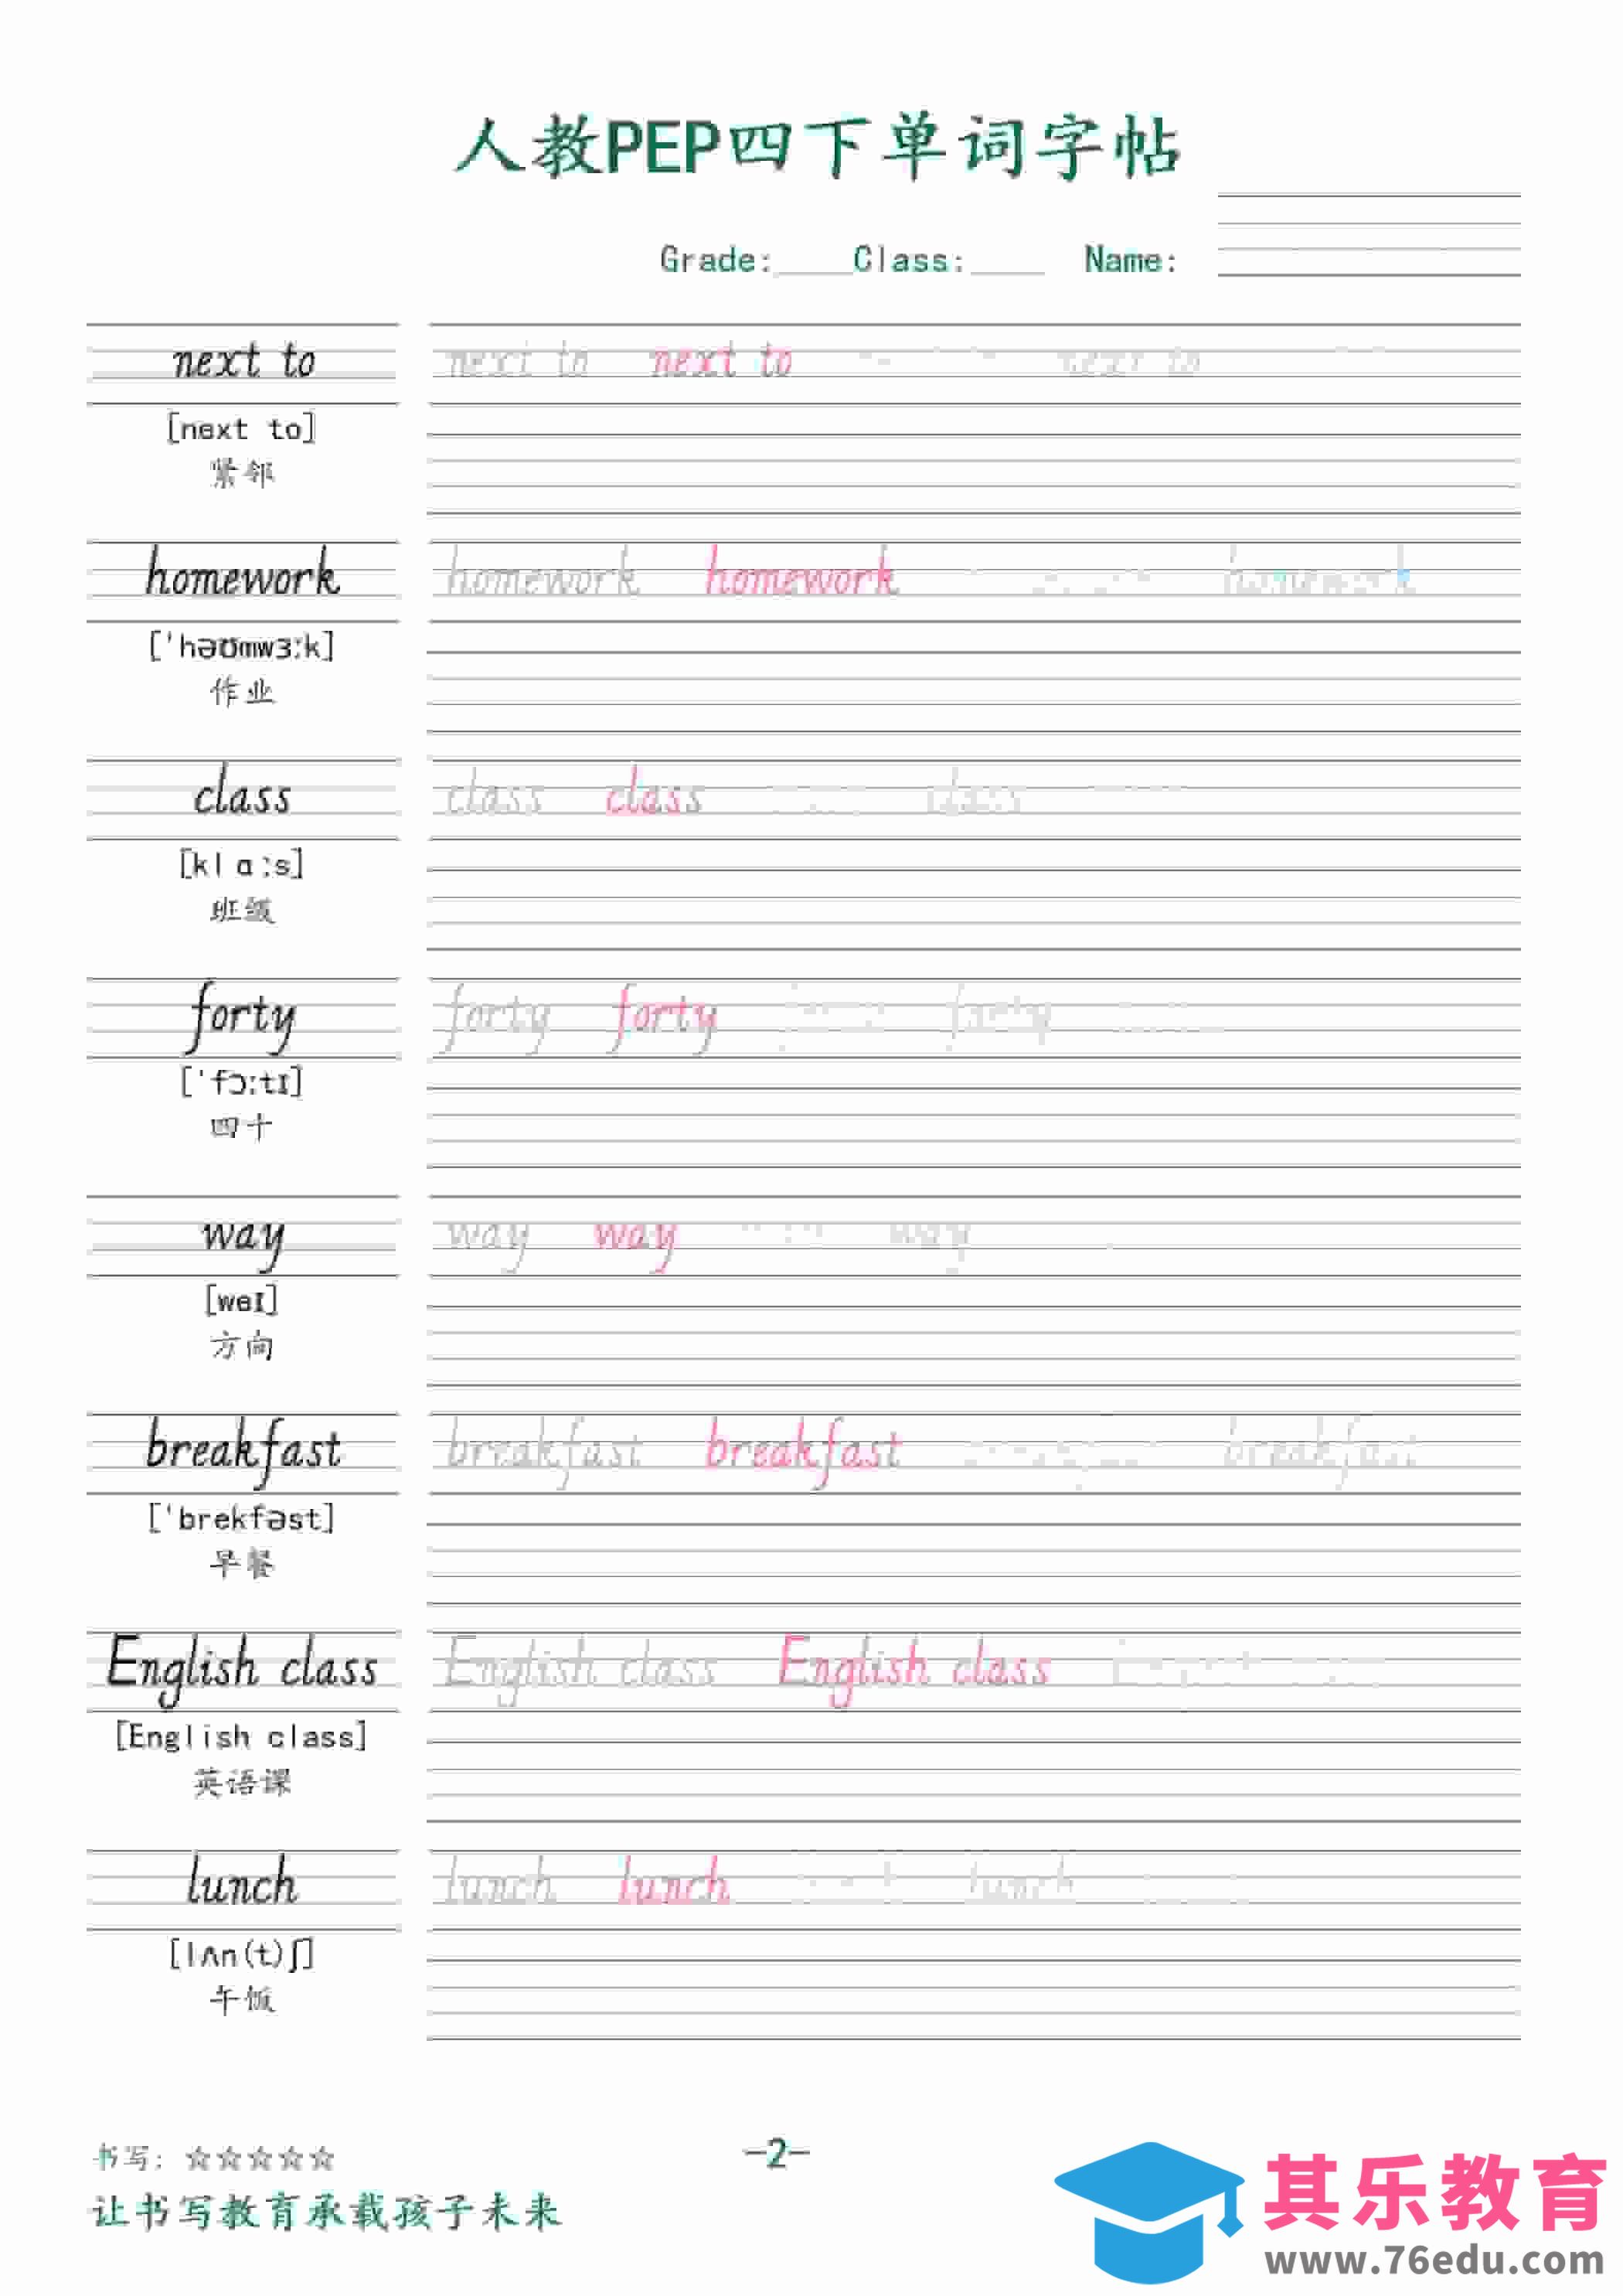 人教PEP四下单词字帖
Grade:____Class:____ Name:
next to next to next to next to
[next to]
紧邻
homework homework homework homework
['həʊmwɜːk]
作业
class class class class
[klɑːs]
班级
forty forty forty forty
['fɔːtɪ]
四十
way way way way
[weɪ]
方向
breakfast breakfast breakfast breakfast
['brekfəst]
早餐
English class English class English class
[English class]
英语课
lunch lunch lunch lunch
[lʌn(t)ʃ]
午饭
书写：☆☆☆☆☆
-2-
让书写教育承载孩子未来
其乐教育
www.76edu.com